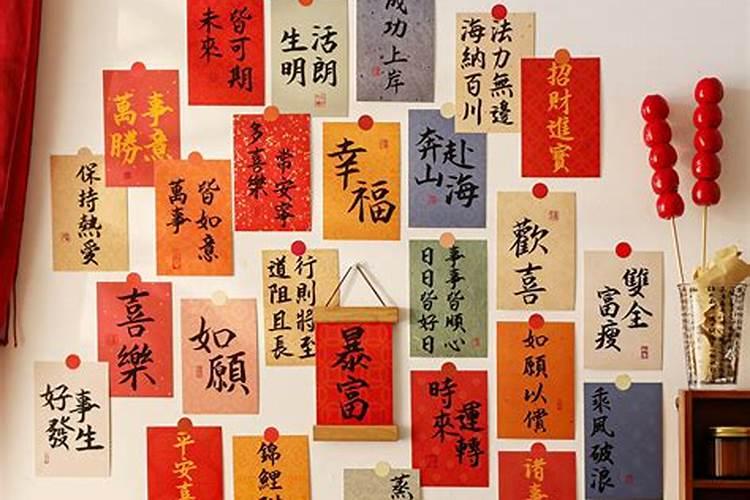 未來
皆可期
生活
明朗
成功上岸
海納百川
法力無邊
招財進寶
萬事
勝意
多喜樂
常安寧
幸福
奔赴
山海
保持熱愛
萬事
皆如意
歡喜
道阻且長
行則將至
日日皆好日
事事皆順心
富瘦
雙全
喜樂
如願
暴富
如願以償
好事
發生
時來
運轉
乘風破浪
平安喜
錦鯉
諸
蒸